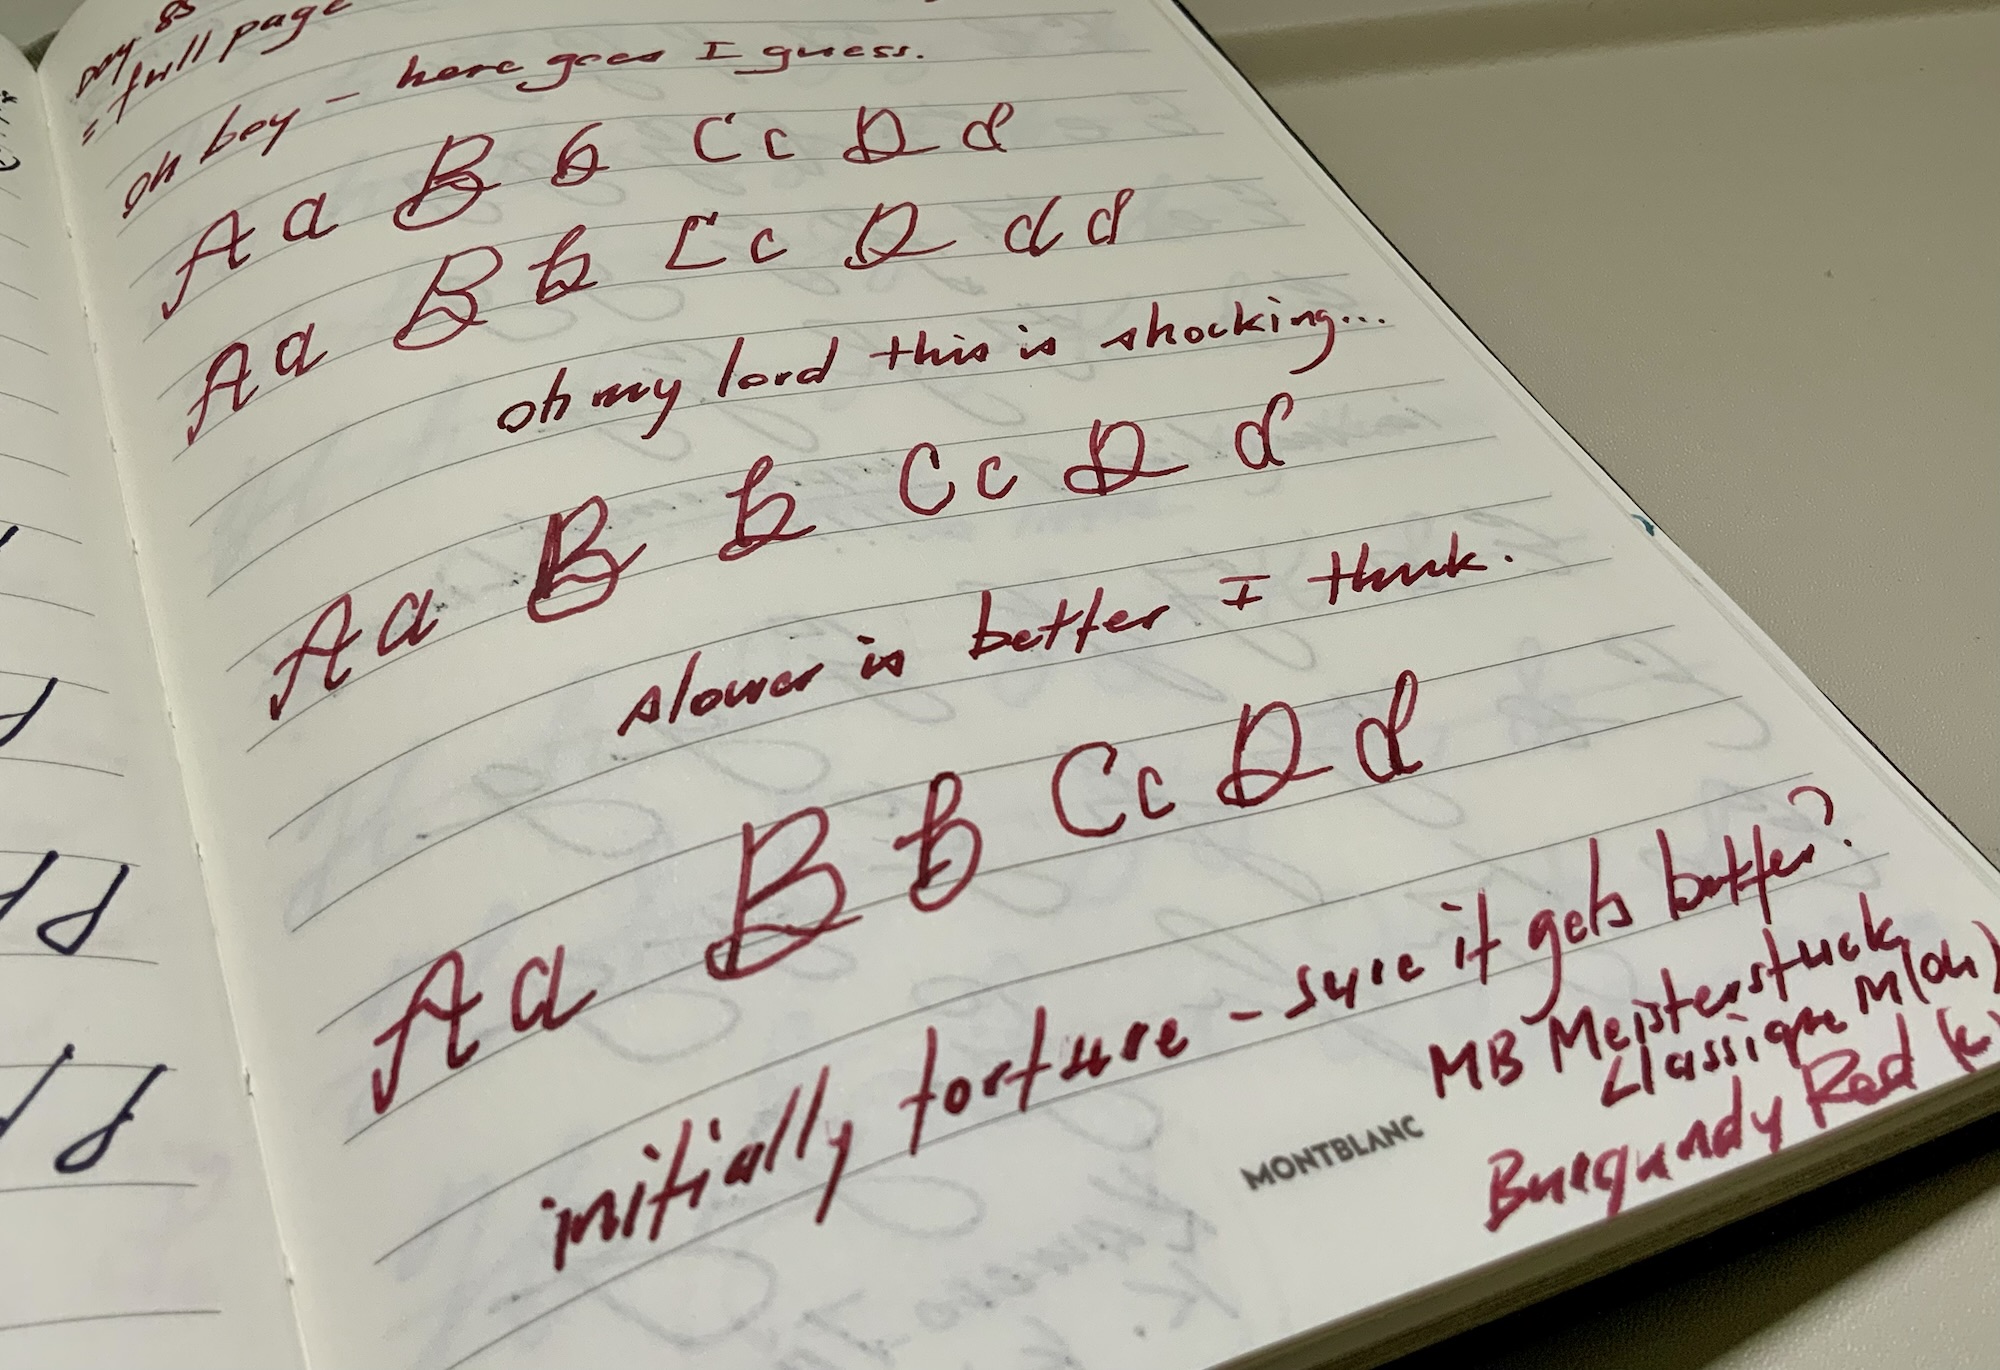 Day 85
= full page
oh boy - here goes I guess.
Aa Bb Cc Dd
Aa Bb Cc D d d
oh my lord this is shocking...
Aa Bb Cc Dd
slower is better I think.
Aa Bb Cc Dd
initially torture - sure it gets better?
MB Meisterstuck
Classique M(OH)
MONTBLANC
Burgundy Red (k)